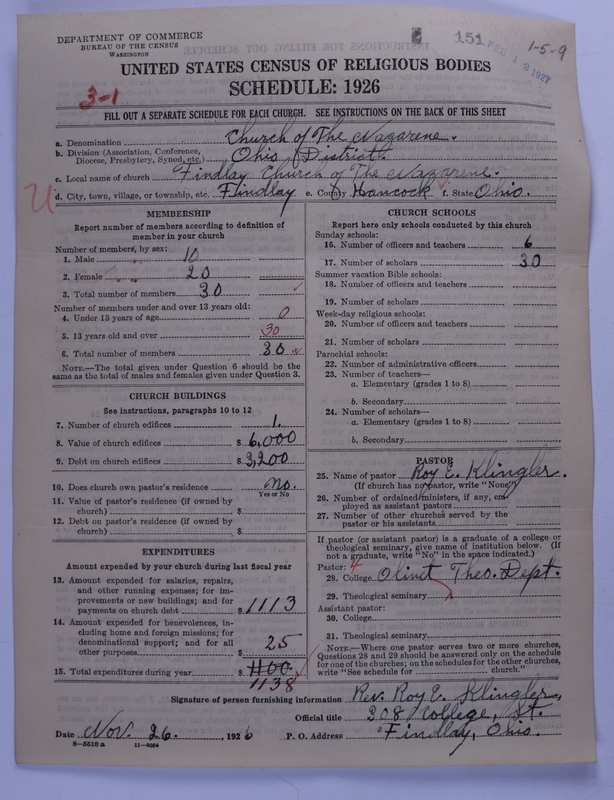 DEPARTMENT OF COMMERCE
BUREAU OF THE CENSUS
WASHINGTON
151
FEB 12 1927
1-5-9
UNITED STATES CENSUS OF RELIGIOUS BODIES
SCHEDULE: 1926
3-1
FILL OUT A SEPARATE SCHEDULE FOR EACH CHURCH. SEE INSTRUCTIONS ON THE BACK OF THIS SHEET
a. Denomination Church of The Nazarene.
b. Division (Association, Conference, Diocese, Presbytery, Synod, etc.) Ohio District.
c. Local name of church Findlay Church of The Nazarene.
U
d. City, town, village, or township, etc. Findlay e. County Hancock f. State Ohio.
MEMBERSHIP
Report number of members according to definition of
member in your church
Number of members, by sex:
1. Male 10
2. Female 20
3. Total number of members 30
Number of members under and over 13 years old:
4. Under 13 years of age 0
5. 13 years old and over 30
6. Total number of members 30
NOTE.—The total given under Question 6 should be
same as the total of males and females given under Question 3.
CHURCH BUILDINGS
See instructions, paragraphs 10 to 12
7. Number of church edifices 1.
8. Value of church edifices $ 6,000
9. Debt on church edifices $ 3,200
10. Does church own pastor's residence No.
Yes or No
11. Value of pastor's residence (if owned by
church) $
12. Debt on pastor's residence (if owned by
church) $
EXPENDITURES
Amount expended by your church during last fiscal year
13. Amount expended for salaries, repairs,
and other running expenses; for im-
provements or new buildings; and for
payments on church debt $ 1113
14. Amount expended for benevolences, in-
cluding home and foreign missions; for
denominational support; and for all
other purposes $ 25
15. Total expenditures during year $ 1100
1138
CHURCH SCHOOLS
Report here only schools conducted by this church
Sunday schools:
16. Number of officers and teachers 6
17. Number of scholars 30
Summer vacation Bible schools:
18. Number of officers and teachers
19. Number of scholars
Week-day religious schools:
20. Number of officers and teachers
21. Number of scholars
Parochial schools:
22. Number of administrative officers
23. Number of teachers—
a. Elementary (grades 1 to 8)
b. Secondary
24. Number of scholars—
a. Elementary (grades 1 to 8)
b. Secondary
PASTOR
25. Name of pastor Roy E. Klingler.
(If church has no pastor, write "None")
26. Number of ordained ministers, if any, em-
ployed as assistant pastors
27. Number of other churches served by the
pastor or his assistants
If pastor (or assistant pastor) is a graduate of a college or
theological seminary, give name of institution below. (If
not a graduate, write "No" in the space indicated.)
Pastor: 4
28. College Olivet Theo. Dept.
29. Theological seminary
Assistant pastor:
30. College
31. Theological seminary
NOTE.—Where one pastor serves two or more churches,
Questions 28 and 29 should be answered only on the schedule
for one of the churches; on the schedules for the other churches,
write "See schedule for church."
Signature of person furnishing information Rev. Roy E. Klingler,
Official title 208 College, St.
Date Nov. 26. 1926 P. O. Address Findlay, Ohio.
8—5518 a 11—9064